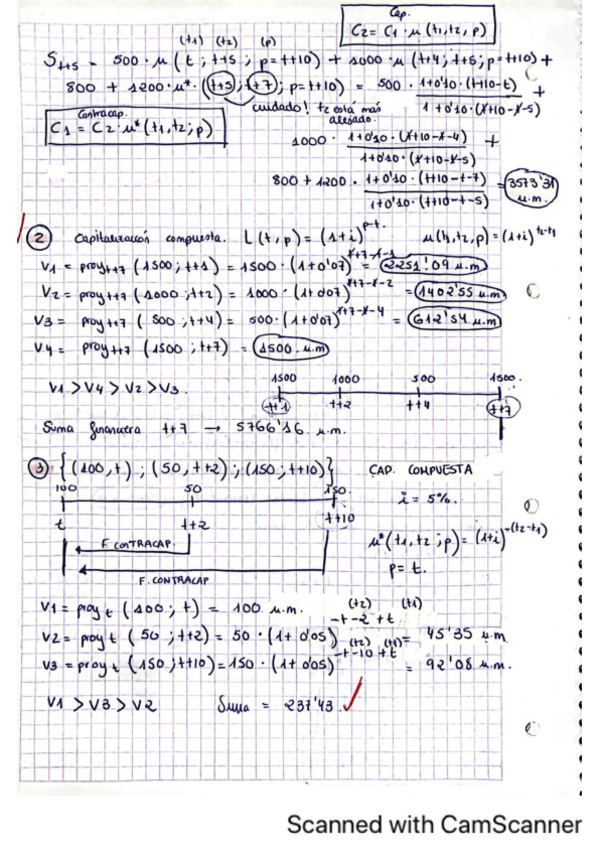 Cap.
C2 = C1 · μ (t1, t2, p)
(t1) (t2) (p)
St+5 = 500 · μ (t ; t+5 ; p = t+10) + 1000 · μ (t+4 ; t+5 ; p = t+10) +
800 + 1200 · μ* · (t+5 ; t+7 ; p = t+10) = 500 · 1+0'10 · (t+10-t) / 1+0'10 · (t+10-t-5) +
cuidado! t2 está más alejado.
Contracap.
C1 = C2 · μ* (t1, t2 ; p)
1000 · 1+0'10 · (t+10-t-4) / 1+0'10 · (t+10-t-5) +
800 + 1200 · 1+0'10 · (t+10-t-7) / 1+0'10 · (t+10-t-5) = 3573'31 u.m.
2 Capitalización compuesta. L(t, p) = (1+i)^p-t. μ(t1, t2, p) = (1+i)^t2-t1
V1 = proy t+7 (1500 ; t+1) = 1500 · (1+0'07)^t+7-t-1 = 2251'09 u.m
V2 = proy t+7 (1000 ; t+2) = 1000 · (1+0'07)^t+7-t-2 = 1402'55 u.m
V3 = proy t+7 (500 ; t+4) = 500 · (1+0'07)^t+7-t-4 = 612'54 u.m
V4 = proy t+7 (1500 ; t+7) = 1500. u.m
V1 > V4 > V2 > V3.
1500 1000 500 1500.
t+1 t+2 t+4 t+7
Suma financiera t+7 → 5766'16 u.m.
3 {(100, t) ; (50, t+2) ; (150 ; t+10)} CAP. COMPUESTA
100 50 150.
i = 5%.
t t+2 t+10
F. CONTRACAP.
μ* (t1, t2 ; p) = (1+i)^-(t2-t1)
p = t.
F. CONTRACAP
V1 = proy t (100 ; t) = 100 u.m.
(t2) (t1)
V2 = proy t (50 ; t+2) = 50 · (1+0'05)^-t-2+t = 45'35 u.m
(t2) (t1)
V3 = proy t (150 ; t+10) = 150 · (1+0'05)^-t-10+t = 92'08 u.m.
V1 > V3 > V2 Suma = 237'43.
Scanned with CamScanner